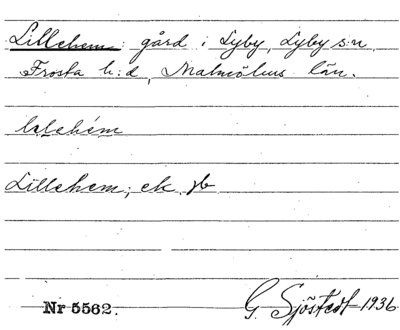 Lillehem: gård i Lyby, Lyby s:n,
Frosta h:d, Malmöhus län.
Lillehem; ek. jb
Nr 5562. G. Sjöstedt 1936